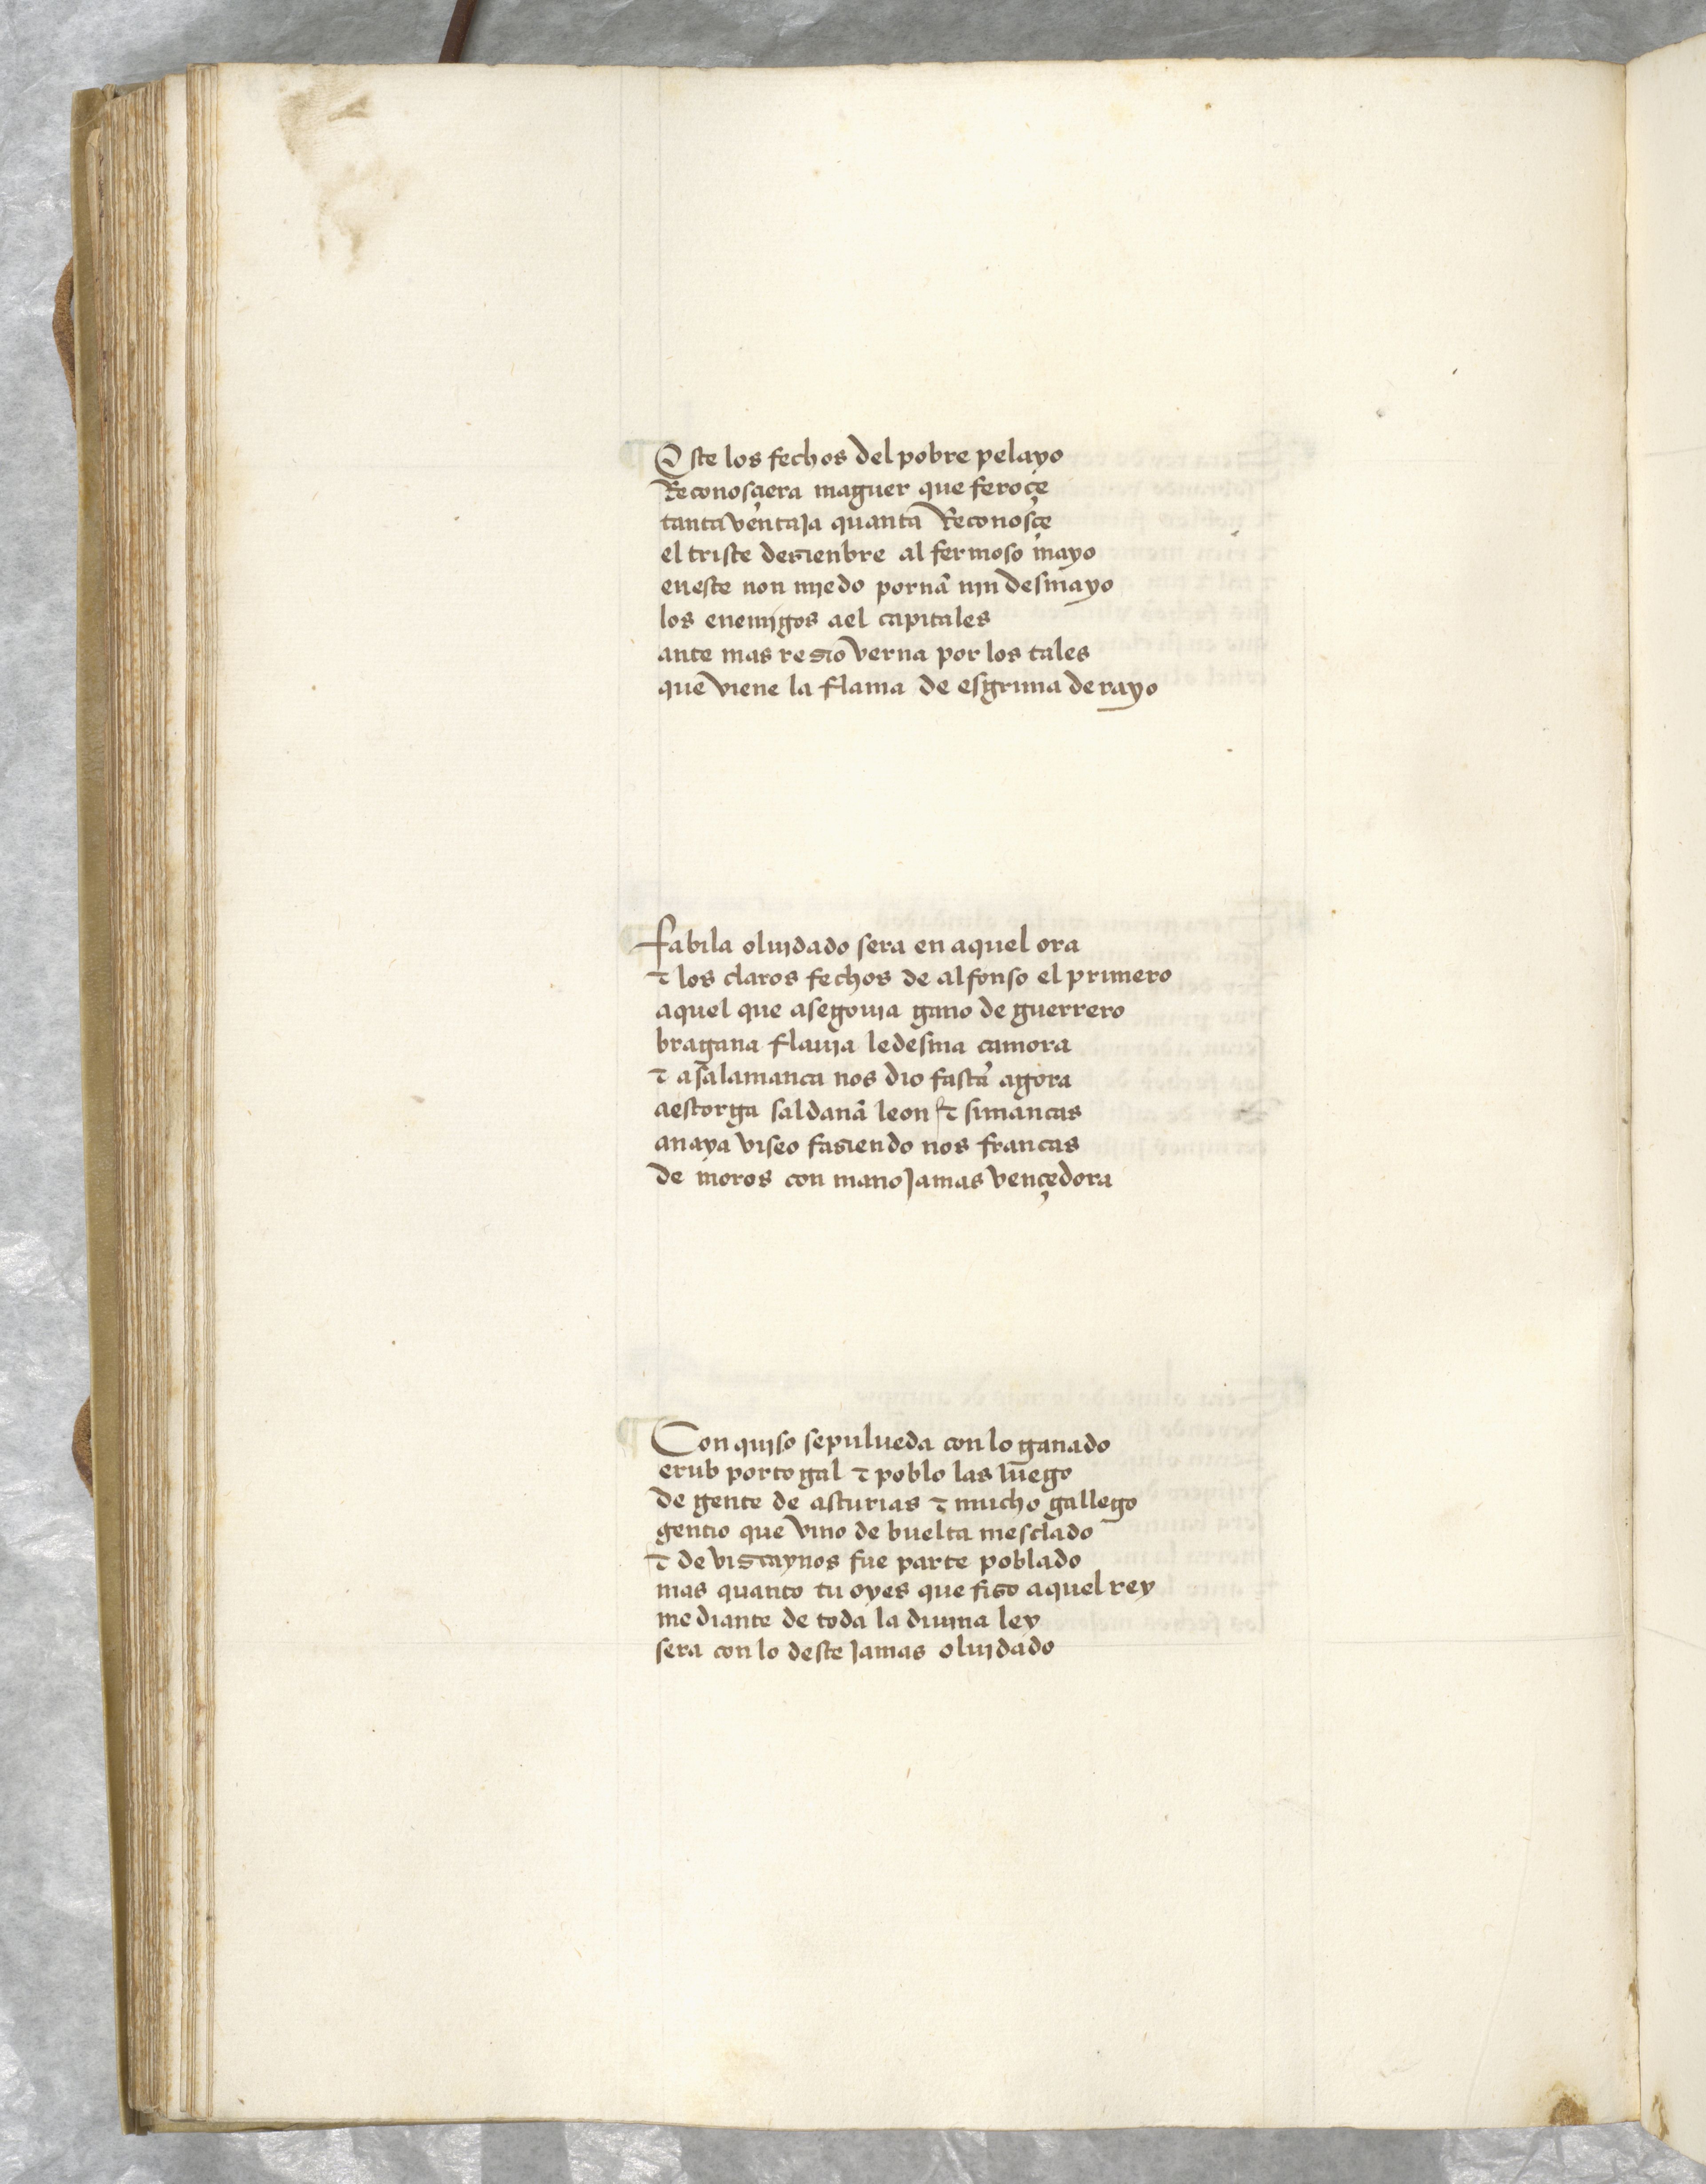 Este los fechos del pobre pelayo
Reconosciera maguer que feroçe
tanta ventaja quanta Reconosçe
el triste dezienbre al fermoso mayo
eneste non mjedo pornã njn desmayo
los enemjgos ael capitales
ante mas rezio verna por los tales
que viene la flama de esgrima de rayo
fabila olujdado sera en aquel ora
τ los claros fechos de alfonso el primero
aquel que asegouja gano de guerrero
bragana flauja ledesma camora
τ asalamanca nos dio fasta agora
aestorga saldanã leon τ simancas
anaya viseo faziendo nos francas
de moros con mano jamas vençedora
Conqujso sepulueda con lo ganado
erub portogal τ poblo las luego
de gente de asturias τ mucho gallego
gentio que vino de buelta mesclado
τ de vizcaynos fue parte poblado
mas quanto tu oyes que fizo aquel rey
mediante de toda la diujna ley
sera con lo deste jamas olujdado